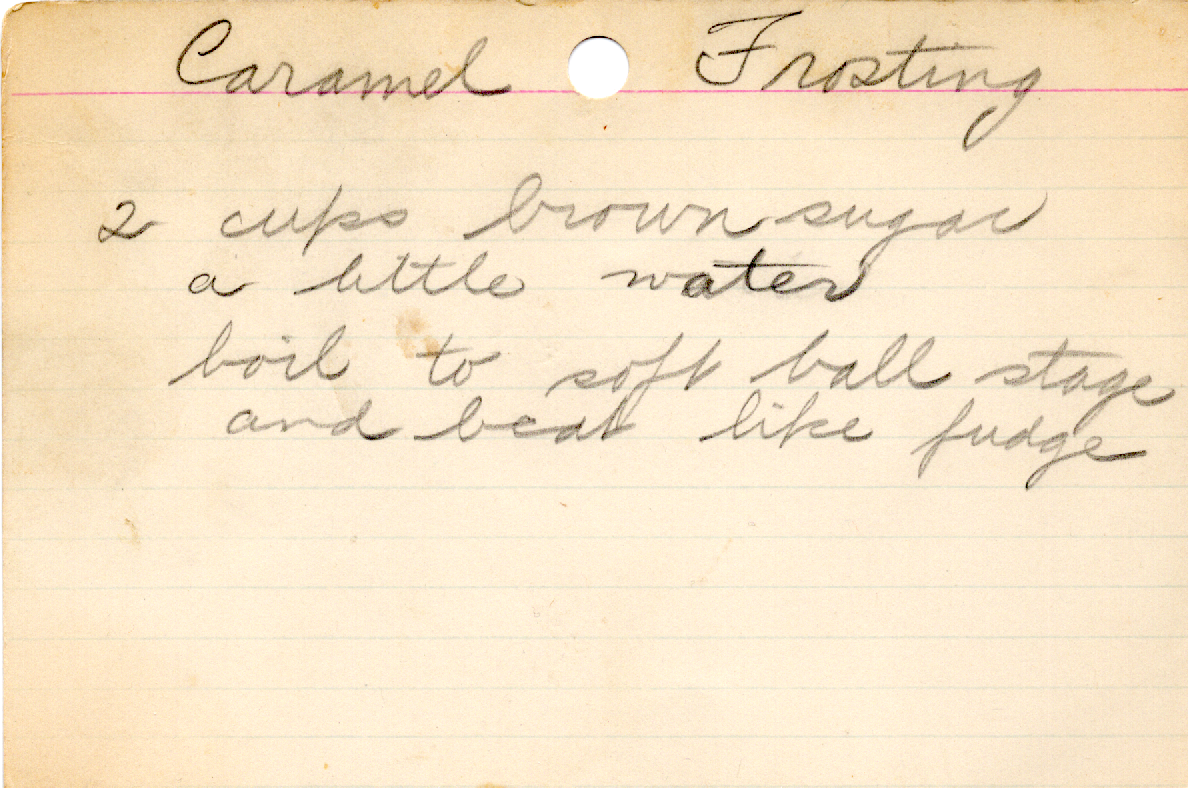 Caramel Frosting
2 cups brown sugar
a little water
boil to soft ball stage
and beat like fudge